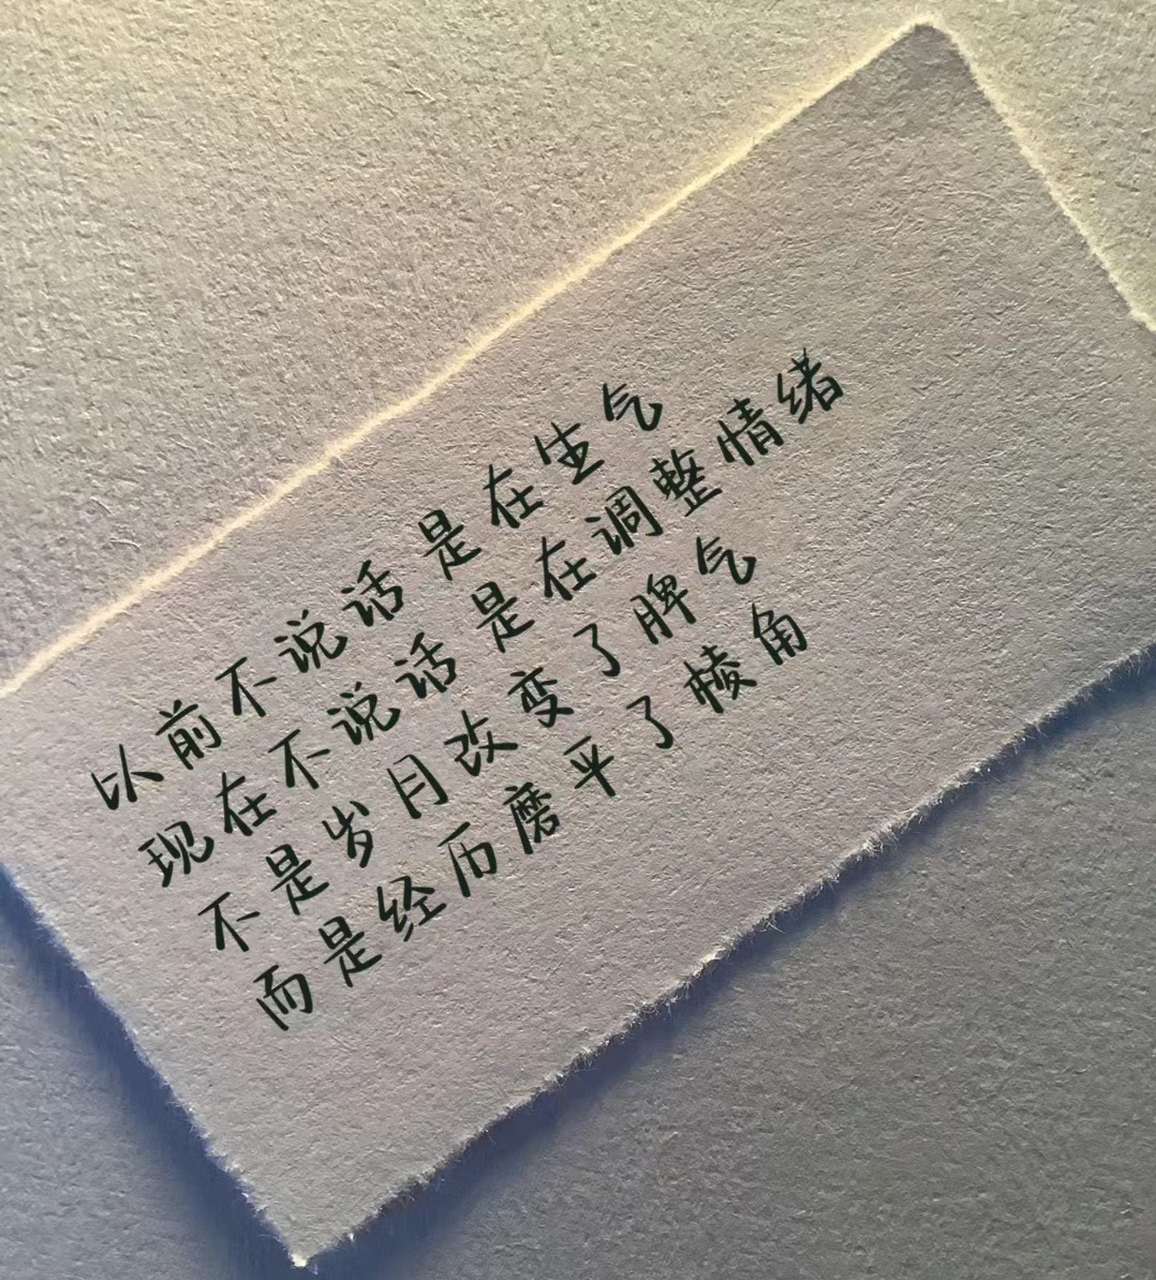 以前不说话是在生气
现在不说话是在调整情绪
不是岁月改变了脾气
而是经历磨平了棱角